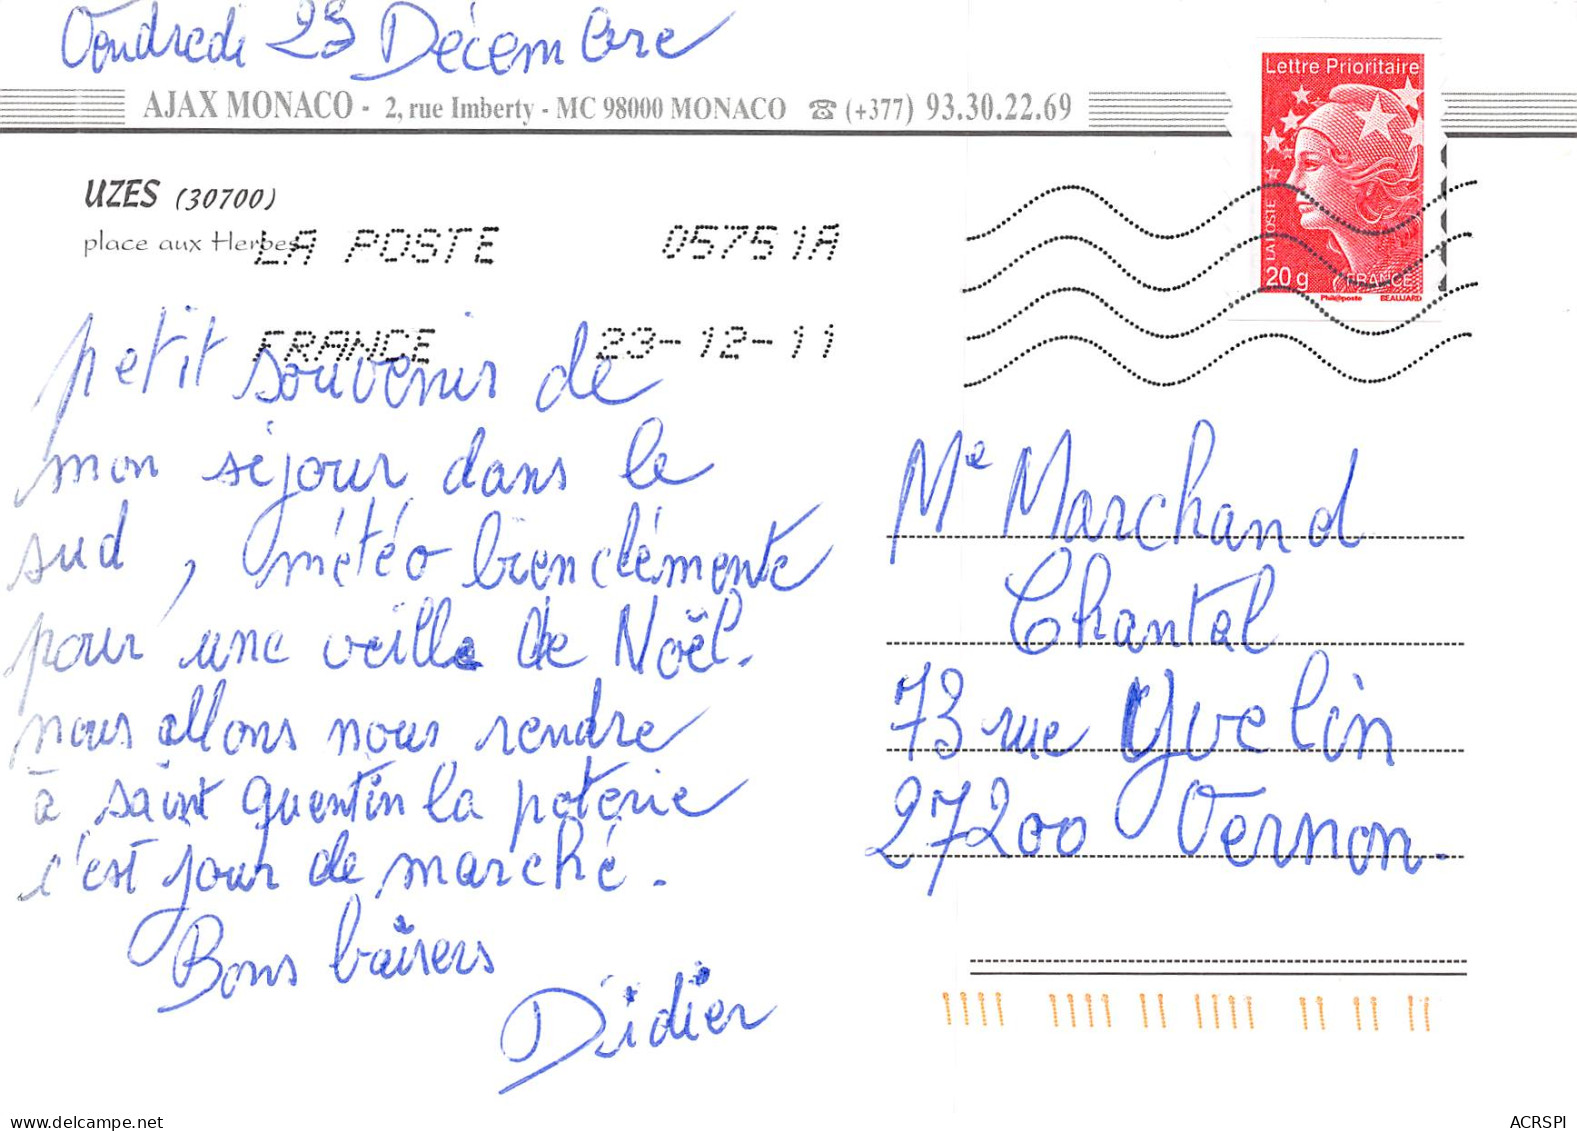 Vendredi 23 Décembre
AJAX MONACO - 2, rue Imberty - MC 98000 MONACO ☎ (+377) 93.30.22.69
Lettre Prioritaire
LA POSTE
20 g
FRANCE
Phil@poste
BEAUJARD
UZES (30700)
place aux Herbes
LA POSTE 05751A
FRANCE 23-12-11
petit souvenir de
mon séjour dans le
sud, météo bien clémente
pour une veille de Noël.
nous allons nous rendre
à saint quentin la poterie
c'est jour de marché.
Bons baisers
Didier
Me Marchand
Chantal
73 rue Yvelin
27200 Vernon.
delcampe.net
ACRSPI